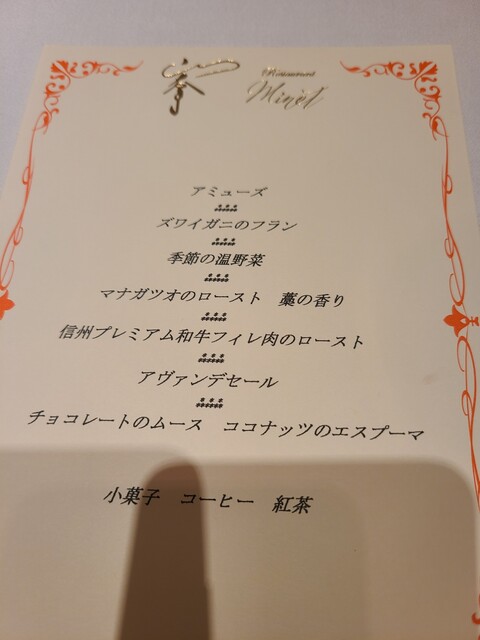 Restaurant
Minet
アミューズ
ズワイガニのフラン
季節の温野菜
マナガツオのロースト 藁の香り
信州プレミアム和牛フィレ肉のロースト
アヴァンデセール
チョコレートのムース ココナッツのエスプーマ
小菓子 コーヒー 紅茶